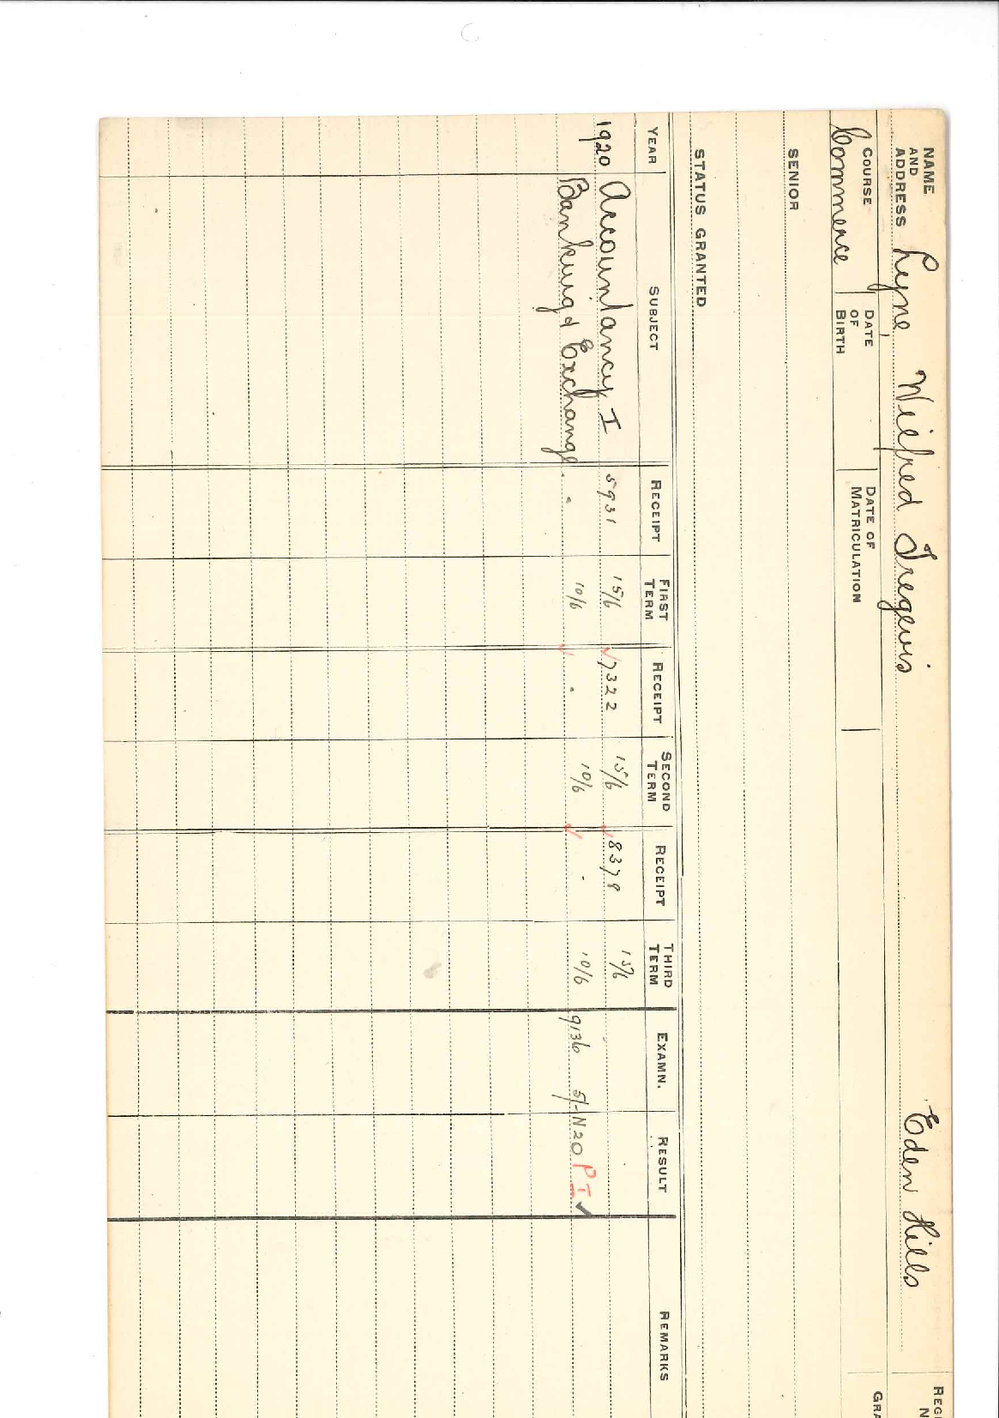 NAME AND ADDRESS Lyne Wilfred Tregewis Eden Hills REG
COURSE DATE OF BIRTH DATE OF MATRICULATION GRA
Commerce
SENIOR
STATUS GRANTED
YEAR SUBJECT RECEIPT FIRST TERM RECEIPT SECOND TERM RECEIPT THIRD TERM EXAMN. RESULT REMARKS
1920 Accountancy I 5931 15/6 7322 15/6 8379 15/6
Banking & Exchange " 10/6 " 10/6 " 10/6 9136 5/- N20 P I ✓